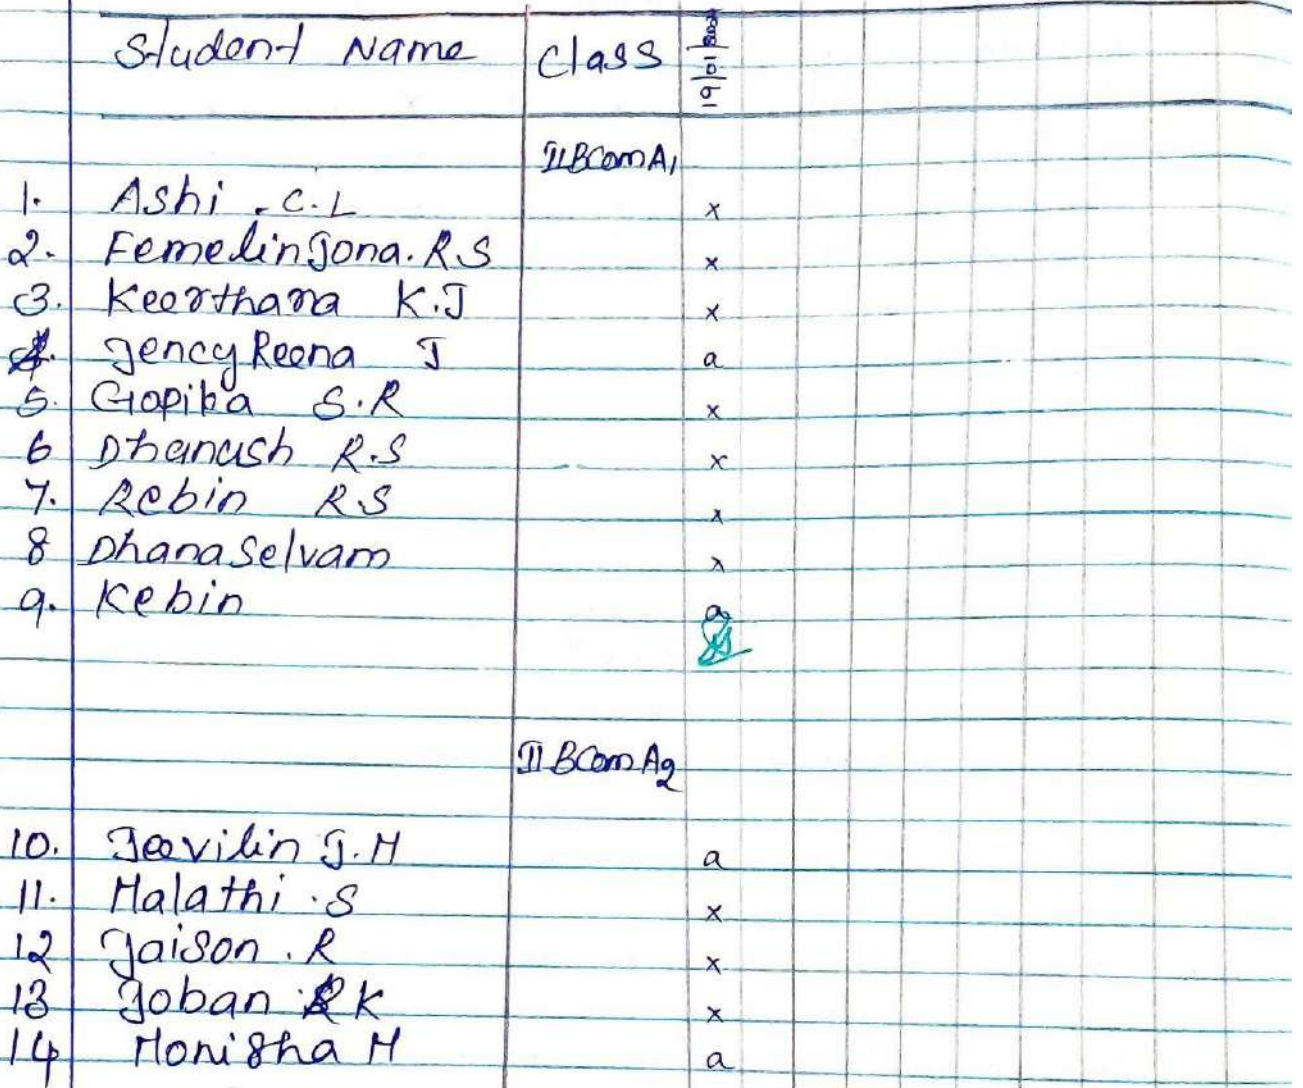 Student Name Class 19/01/
II BCom A1
1. Ashi . C.L x
2. Femelin Jona. R.S x
3. Keerthana K.J x
4. Jency Reena J a
5. Gopika S.R x
6 Dhanush R.S x
7. Rebin R.S x
8 Dhana Selvam x
9. Kebin a
II BCom A2
10. Jeevilin J.M a
11. Malathi . S x
12 Jaison . R x
13 Joban K x
14 Monisha M a